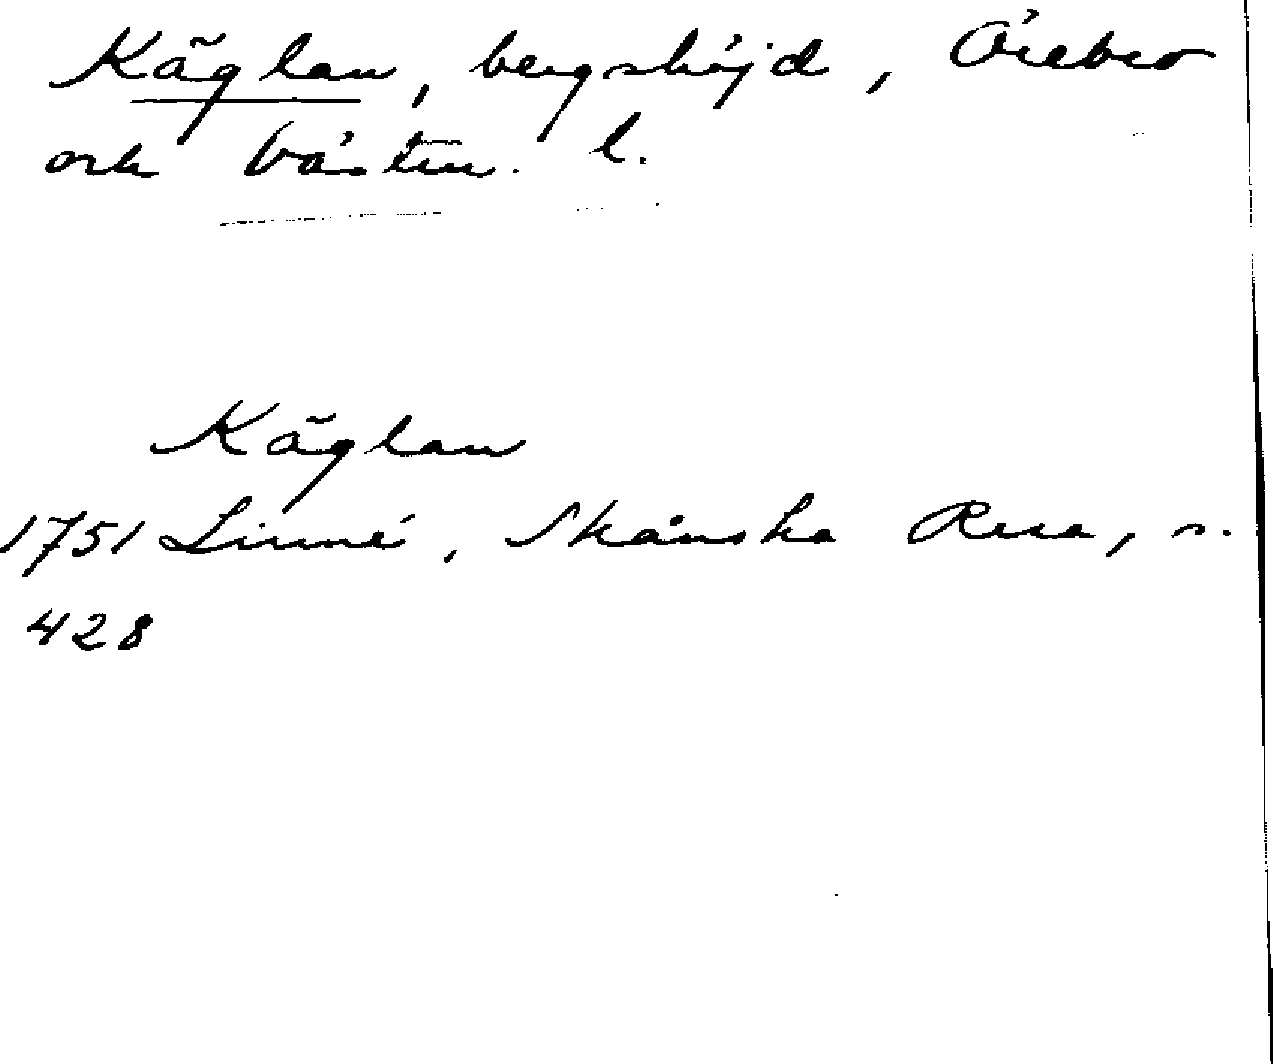 Käglan, bergshöjd, Örebro
och Västm. l.
Käglan
1751 Linné, Skånska Resa, s.
428